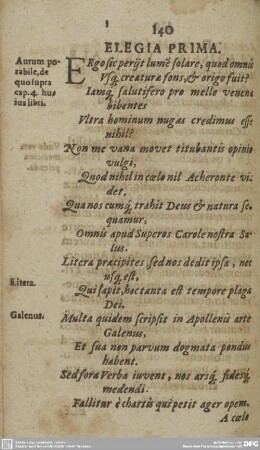 140
ELEGIA PRIMA.
Aurum po-
tabile, de
quo supra
cap. 4. hu-
ius libri.
ERgo sic perijt lumẽ solare, quod omnis
Vsq; creaturæ fons, & origo fuit?
Iamq; salutifero pro melle venena
bibentes
Vltra hominum nugas credimus esse
nihil?
Non me vana movet titubantis opinio
vulgi,
Quod nihil in cœlo nil Acheronte vi-
det.
Qua nos cumq; trahit Deus & natura se-
quamur,
Omnis apud Superos Carole nostra Sa-
lus.
Litera præcipites, sed nos dedit ipsa, nec
usq; est,
Litera.
Qui sapit, hoc tanta est tempore plaga
Dei.
Galenus.
Multa quidem scripsit in Apollinis arte
Galenus,
Et sua non parvum dogmata pondus
habent.
Sed fora Verba iuvent, nos arsq; fidesq;
medendi.
Fallitur è chartis qui petit æger opem.
A cœlo